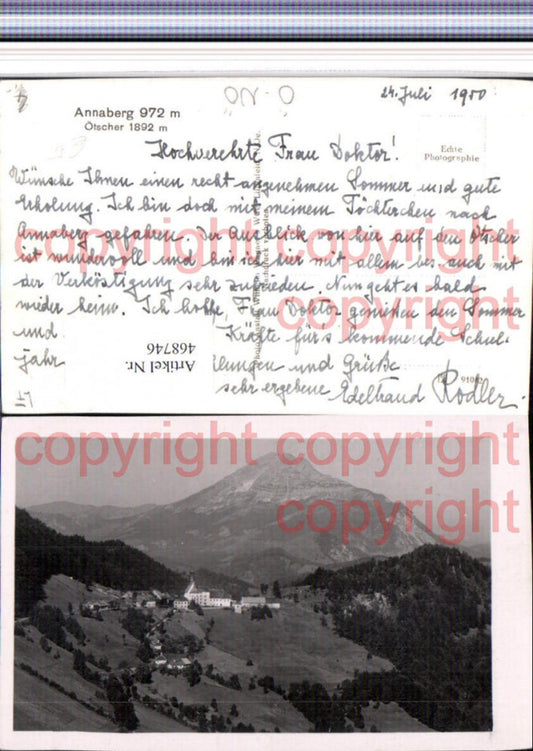 24. Juli 1950
Annaberg 972 m
Ötscher 1892 m
Echte
Photographie
Hochverehrte Frau Doktor!
Wünsche Ihnen einen recht angenehmen Sommer und gute
Erholung. Ich bin doch mit meinem Töchterchen nach
Annaberg gefahren. Der Ausblick von hier auf den Ötscher
ist wundervoll und bin ich hier mit allem bes. auch mit
der Verköstigung sehr zufrieden. Nun geht es bald
wieder heim. Ich hoffe, Frau Doktor genießen den Sommer
und Kräfte für's kommende Schul-
jahr
Artikel Nr.
468746
und Grüße
sehr ergebene Edeltraud Rodler.
copyright copyright
copyright
copyright copyright
copyright